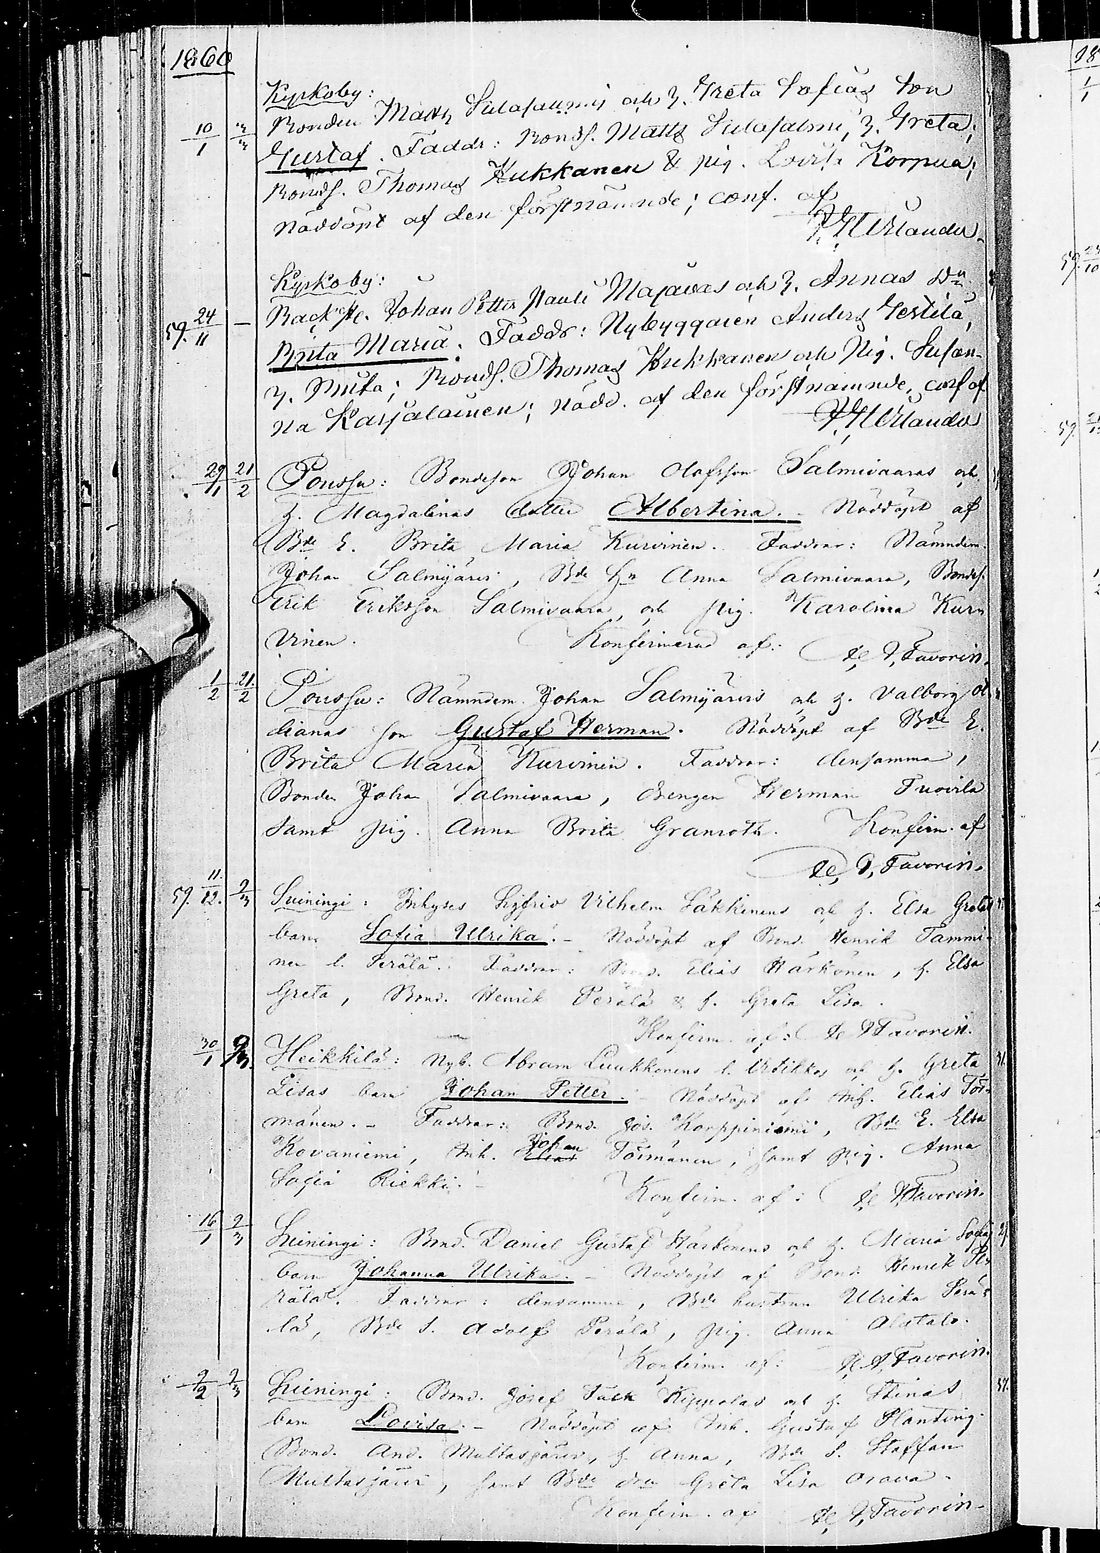 1860
Kyrkoby:
10/1 3/3 Bonden Matts Sulasalmis och h. Greta Sofias son
Gustaf. Faddr: Bonds. Matts Sulasalmi, h. Greta;
Bonds. Thomas Kukkanen & pig. Lovisa Korpua;
nöddöpt af den förstnämnde; conf. af
Kyrkoby:
59. 24/11 – Johan Petter Pauli Majavas och h. Annas
Brita Maria. Faddr: Nybyggaren Anders
h. Brita; Bonds. Thomas Kukkanen och Pig. Susan-
na Karjalainen; nödd. af den förstnämnde, conf. af
29/1 21/2 Poussu: Bondeson Johan Olofsson Salmivaaras och
h. Magdalenas dotter Albertina. – Nöddöpt af
Bde E. Brita Maria Kurvinen. Faddrar: Nämndem.
Johan Salmijärvi, Bde Hu Anna Salmivaara, Bondes.
Erik Eriksson Salmivaara, och pig. Karolina Kur-
vinen. Konfirmerad af: Favorin.
1/2 21/2 Poussu: Nämndem. Johan Salmijärvis och h. Valborg
dianas son Gustaf Herman. Nöddöpt af Bde E.
Brita Maria Kurvinen. Faddrar: densamma,
Bonden Johan Salmivaara, drengen Herman Tuovila
samt pig. Anna Brita Granroth. Konfirm. af
Favorin.
59. 11/12. 2/3 Suiningi: Inhyses Sigfrid Vilhelm Säkkinens och h. Elsa Gretas
barn Sofia Ulrika. – Nöddöpt af Bond. Henrik Tammi-
nen l. Perälä. Faddrar: Bond. Elias Härkönen, h. Elsa
Greta, Bond. Henrik Perälä & h. Greta Lisa.
Konfirm. af: Favorin.
30/1 9/3 Heikkilä: Nyb. Abram Luukkonens l. och h. Greta
Lisas barn Johan Petter. – Nöddöpt af Inh. Elias Tör-
mänen. – Faddrar: Bond. Jos. Korppiniemi, Bde E. Elsa
Kovaniemi, Inh. Johan Törmänen, samt pig. Anna
Sofia Riekki. – Konfirm. af: Favorin.
16/1 2/3 Suiningi: Bond. Daniel Gustaf Härkönens och h. Maria Sofias
barn Johanna Ulrika. – Nöddöpt af Bond. Henrik Pe-
rälä. Faddrar: densamme, Bde hustrun Ulrika Perä-
lä, Bde S. Adolf Perälä, pig. Anna Alatalo.
Konfirm. af: Favorin.
2/2 2/3 Suiningi: Bond. Josef Falk Kippolas och h. Stinas
barn Lovisa. – Nöddöpt af Inh. Gustaf Planting.
Bond. And. Multasjärvi, h. Anna, Bde S. Staffan
Multasjärvi, samt Bde Greta Lisa Orava.
Konfirm. af Favorin.